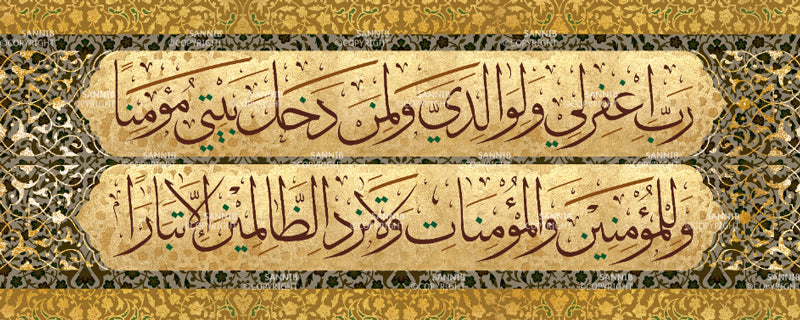 رَبِّ اغْفِرْ لِي وَلِوَالِدَيَّ وَلِمَنْ دَخَلَ بَيْتِيَ مُؤْمِنًا
وَلِلْمُؤْمِنِينَ وَالْمُؤْمِنَاتِ وَلَا تَزِدِ الظَّالِمِينَ إِلَّا تَبَارًا
SANNIB
©COPYRIGHT